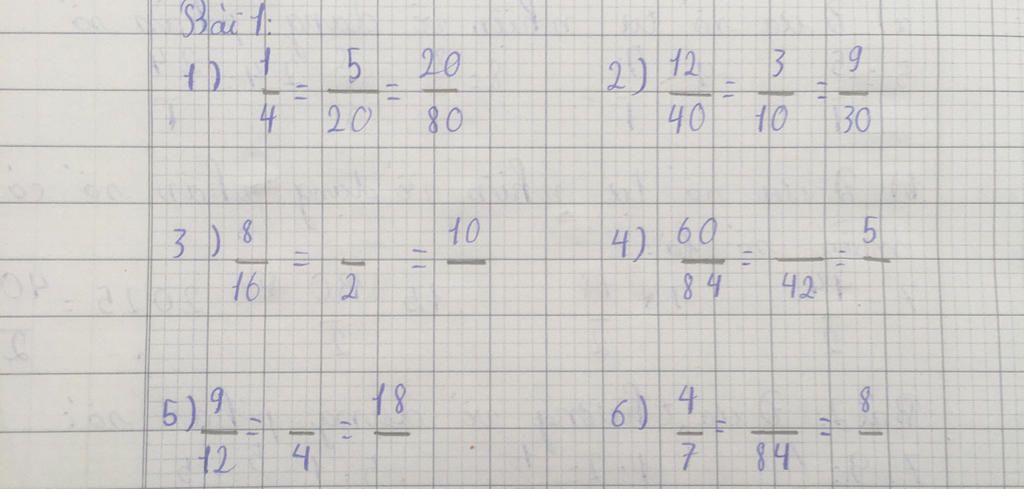 Bài 1:
1) 1/4 = 5/20 = 20/80
2) 12/40 = 3/10 = 9/30
3) 8/16 = /2 = 10/
4) 60/84 = /42 = 5/
5) 9/12 = /4 = 18/
6) 4/7 = /84 = 8/